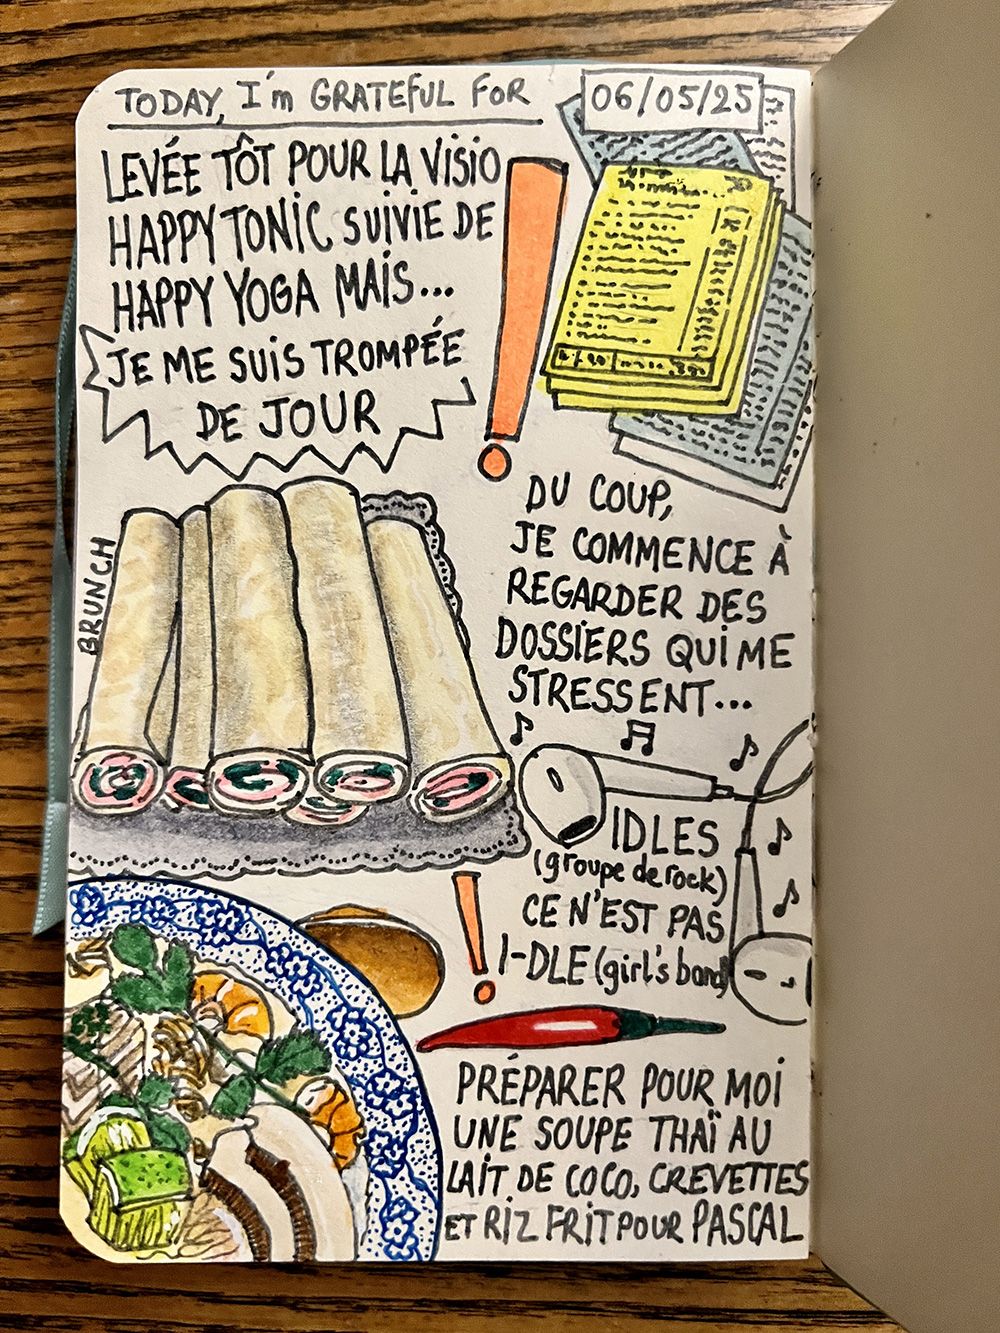 TODAY, I'm GRATEFUL FOR
06/05/25
LEVÉE TÔT POUR LA VISIO
HAPPY TONIC SUIVIE DE
HAPPY YOGA MAIS...
JE ME SUIS TROMPÉE
DE JOUR
!
DU COUP,
JE COMMENCE À
REGARDER DES
DOSSIERS QUI ME
STRESSENT...
BRUNCH
IDLES
(groupe de rock)
CE N'EST PAS
I-DLE (girl's band)
!
PRÉPARER POUR MOI
UNE SOUPE THAÏ AU
LAIT DE COCO, CREVETTES
ET RIZ FRIT POUR PASCAL